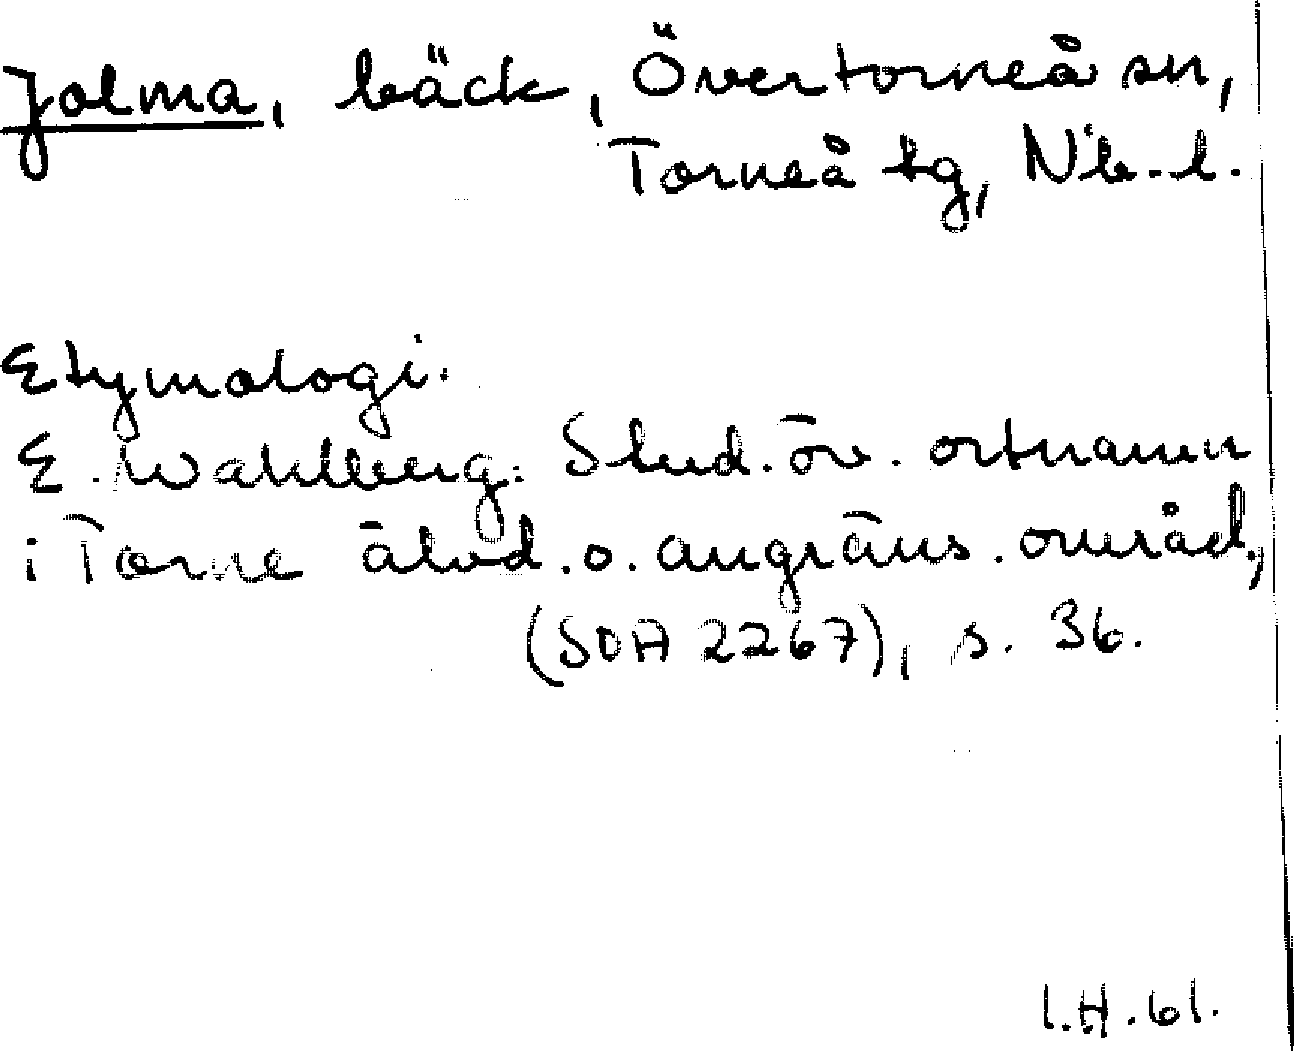 Jolma, bäck, Övertorneå sn,
Torneå tg, Nb. l.
Etymologi.
E. Wahlberg: Stud. öv. ortnamn
i Torne älvd. o. angräns. område,
(SOA 2267), s. 36.
I.H. 61.